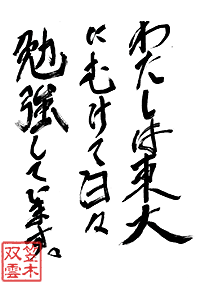 わたしは東大
にむけて日々
勉強しています。
笠木
双雲